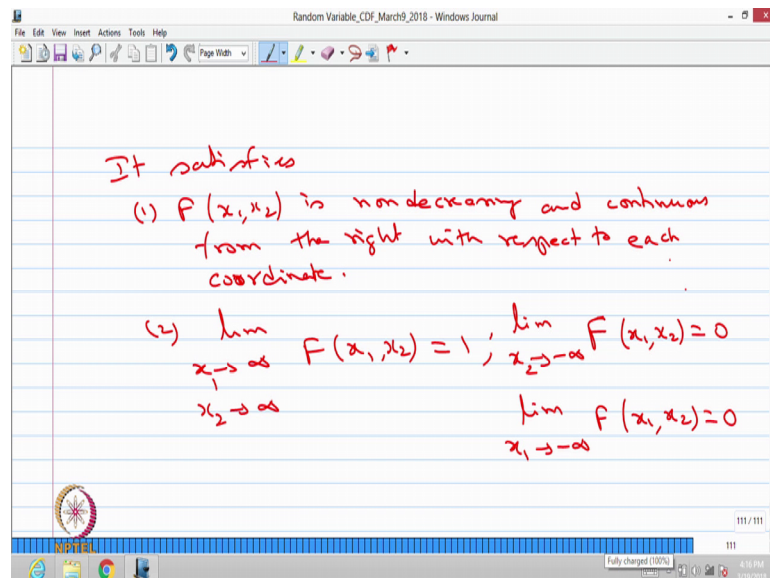 Random Variable_CDF_March9_2018 - Windows Journal
File Edit View Insert Actions Tools Help
Page Width
It satisfies
(1) F(x₁,x₂) is nondecreasing and continuous
from the right with respect to each
coordinate.
(2) lim x₁→∞ x₂→∞ F(x₁,x₂) = 1 ; lim x₂→-∞ F(x₁,x₂) = 0
lim x₁→-∞ F(x₁,x₂) = 0
NPTEL
111 / 111
111
Fully charged (100%)
4:16 PM